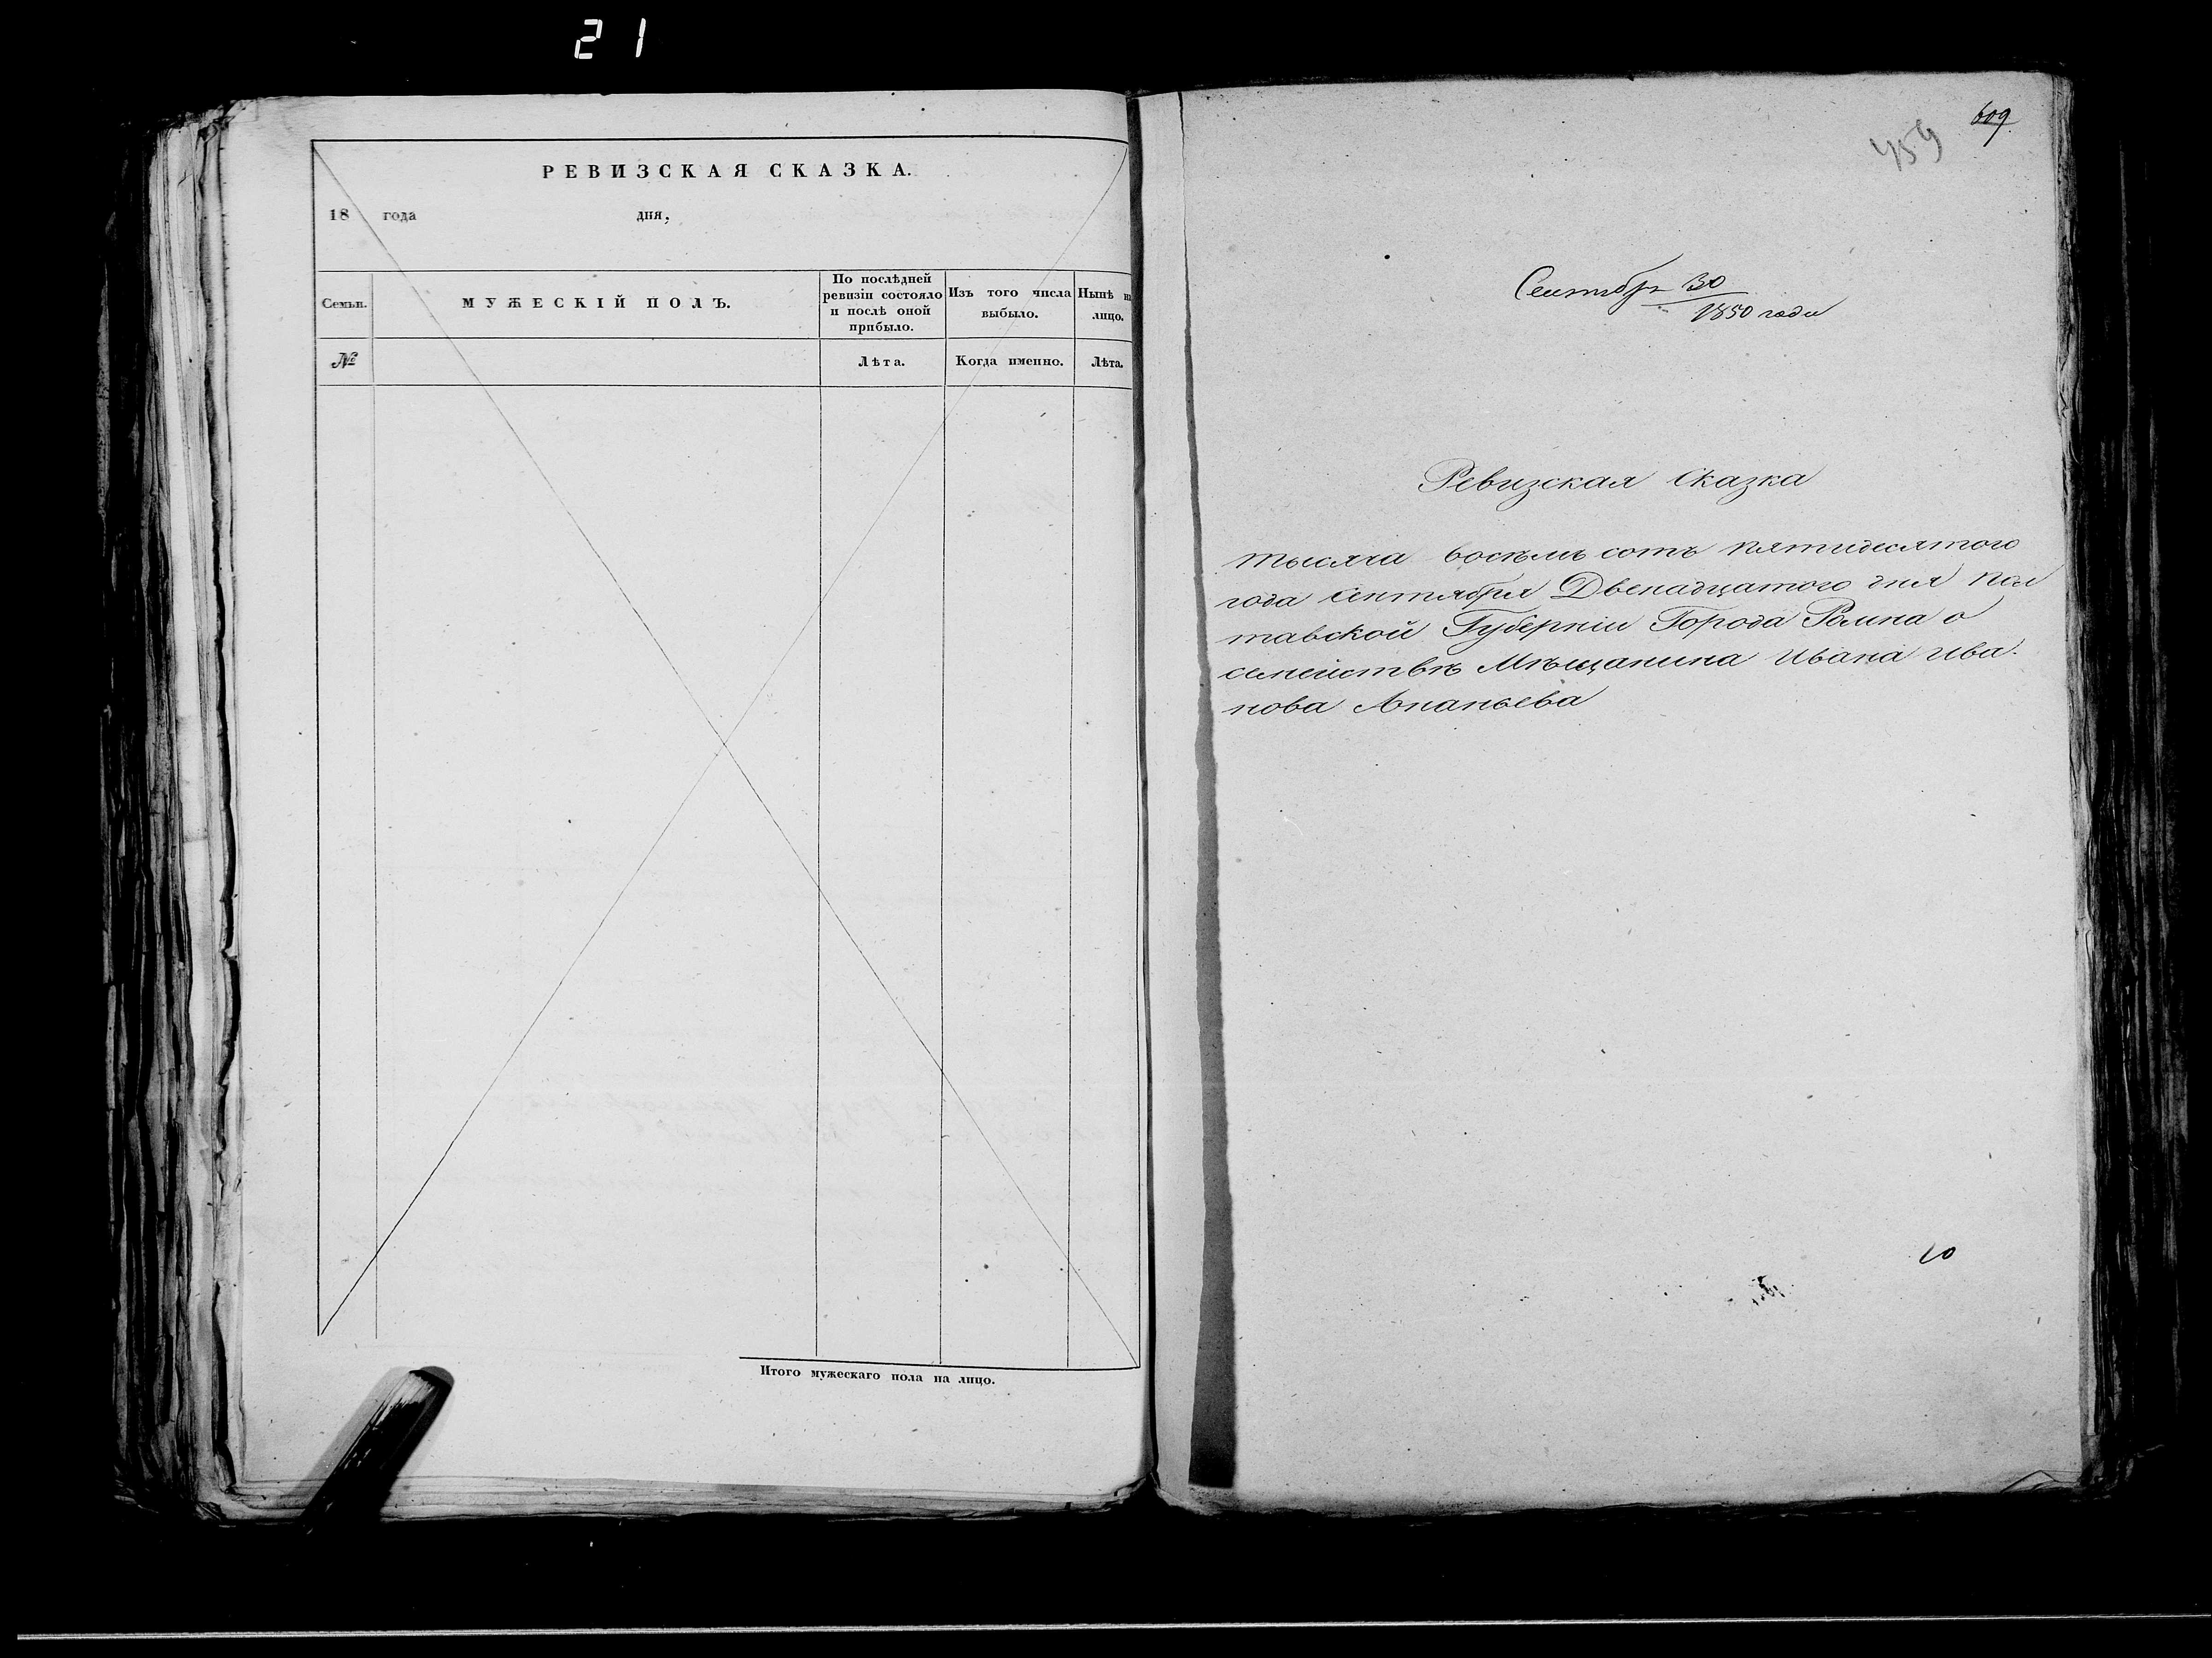 21
РЕВИЗСКАЯ СКАЗКА.
18 года дня,
Семьи.
МУЖЕСКІЙ ПОЛЪ.
По послѣдней
ревизіи состояло
и послѣ оной
прибыло.
Изъ того числа
выбыло.
Нынѣ на
лицо.
№
Лѣта.
Когда именно.
Лѣта.
Итого мужескаго пола на лицо.
609
459
Сентябр 30
1850 года
Ревизская Сказка
Тысяча восемь сотъ пятидесятого
года Сентября Двенадцатого дня Пол
тавской Губерніи Города Ромна о
семействѣ Мѣщанина Ивана Ива
нова Ананьева
10